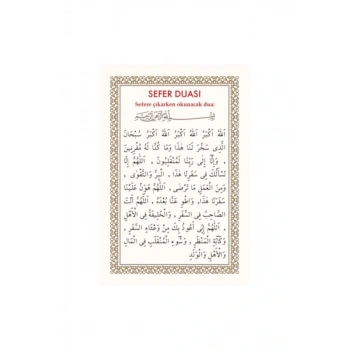 SEFER DUASI
Sefere çıkarken okunacak dua:
بِسْمِ اللهِ الرَّحْمٰنِ الرَّحِيمِ
اَللهُ اَكْبَرُ اَللهُ اَكْبَرُ اَللهُ اَكْبَرُ سُبْحَانَ
الَّذِى سَخَّرَ لَنَا هَذَا وَمَا كُنَّا لَهُ مُقْرِنِينَ
، وَإِنَّا إِلَى رَبِّنَا لَمُنْقَلِبُونَ ، اَللَّهُمَّ إِنَّا
نَسْأَلُكَ فِى سَفَرِنَا هَذَا ، الْبِرَّ وَالتَّقْوَى ،
وَمِنَ الْعَمَلِ مَا تَرْضَى ، اَللَّهُمَّ هَوِّنْ عَلَيْنَا
سَفَرَنَا هَذَا، وَاطْوِ عَنَّا بُعْدَهُ ، اَللَّهُمَّ أَنْتَ
الصَّاحِبُ فِى السَّفَرِ ، وَالْخَلِيفَةُ فِى الْأَهْلِ
، اَللَّهُمَّ إِنِّى أَعُوذُ بِكَ مِنْ وَعْثَاءِ السَّفَرِ ،
وَكَآبَةِ الْمَنْظَرِ ، وَسُوءِ الْمُنْقَلَبِ فِى الْمَالِ
وَالْأَهْلِ وَالْوَلَدِ